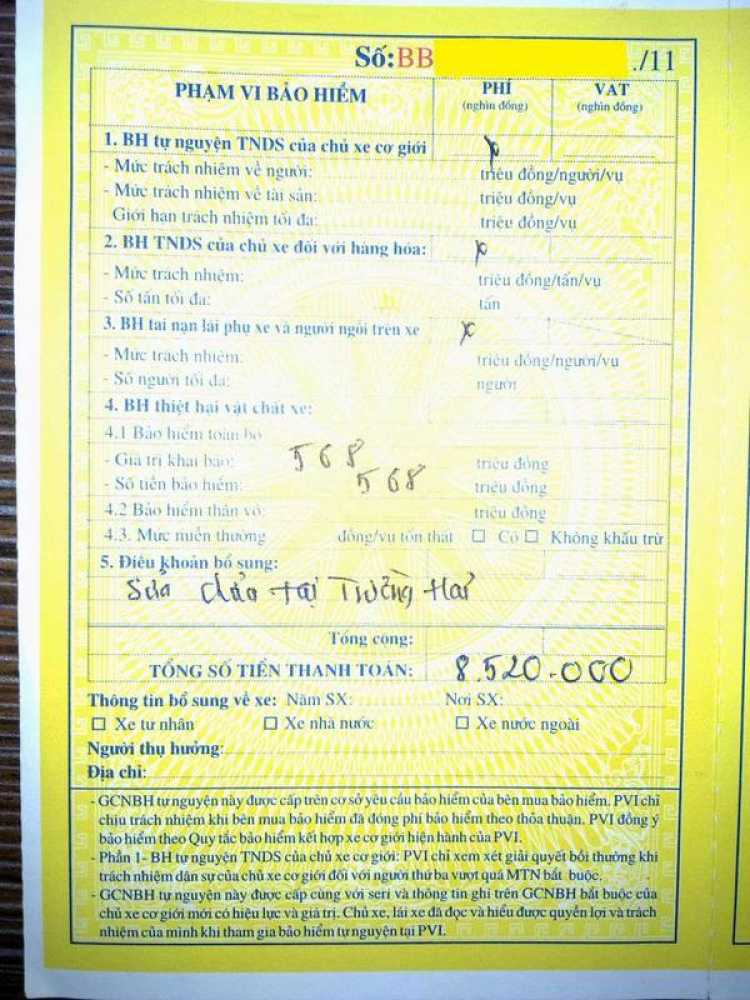 Số:BB ./11
PHẠM VI BẢO HIỂM PHÍ (nghìn đồng) VAT (nghìn đồng)
1. BH tự nguyện TNDS của chủ xe cơ giới x
- Mức trách nhiệm về người: triệu đồng/người/vụ
- Mức trách nhiệm về tài sản: triệu đồng/vụ
Giới hạn trách nhiệm tối đa: triệu đồng/vụ
2. BH TNDS của chủ xe đối với hàng hóa: x
- Mức trách nhiệm: triệu đồng/tấn/vụ
- Số tấn tối đa: tấn
3. BH tai nạn lái phụ xe và người ngồi trên xe x
- Mức trách nhiệm: triệu đồng/người/vụ
- Số người tối đa: người
4. BH thiệt hại vật chất xe:
4.1 Bảo hiểm toàn bộ
- Giá trị khai báo: 568 triệu đồng
- Số tiền bảo hiểm: 568 triệu đồng
4.2 Bảo hiểm thân vỏ: triệu đồng
4.3. Mức miễn thường đồng/vụ tổn thất ☐ Có ☐ Không khấu trừ
5. Điều khoản bổ sung:
Sửa chữa tại Trường Hải
Tổng cộng:
TỔNG SỐ TIỀN THANH TOÁN: 8.520.000
Thông tin bổ sung về xe: Năm SX: Nơi SX:
☐ Xe tư nhân ☐ Xe nhà nước ☐ Xe nước ngoài
Người thụ hưởng:
Địa chỉ:
- GCNBH tự nguyện này được cấp trên cơ sở yêu cầu bảo hiểm của bên mua bảo hiểm. PVI chỉ
chịu trách nhiệm khi bên mua bảo hiểm đã đóng phí bảo hiểm theo thỏa thuận. PVI đồng ý
bảo hiểm theo Quy tắc bảo hiểm kết hợp xe cơ giới hiện hành của PVI.
- Phần 1- BH tự nguyện TNDS của chủ xe cơ giới: PVI chỉ xem xét giải quyết bồi thường khi
trách nhiệm dân sự của chủ xe cơ giới đối với người thứ ba vượt quá MTN bắt buộc.
- GCNBH tự nguyện này được cấp cùng với seri và thông tin ghi trên GCNBH bắt buộc của
chủ xe cơ giới mới có hiệu lực và giá trị. Chủ xe, lái xe đã đọc và hiểu được quyền lợi và trách
nhiệm của mình khi tham gia bảo hiểm tự nguyện tại PVI.